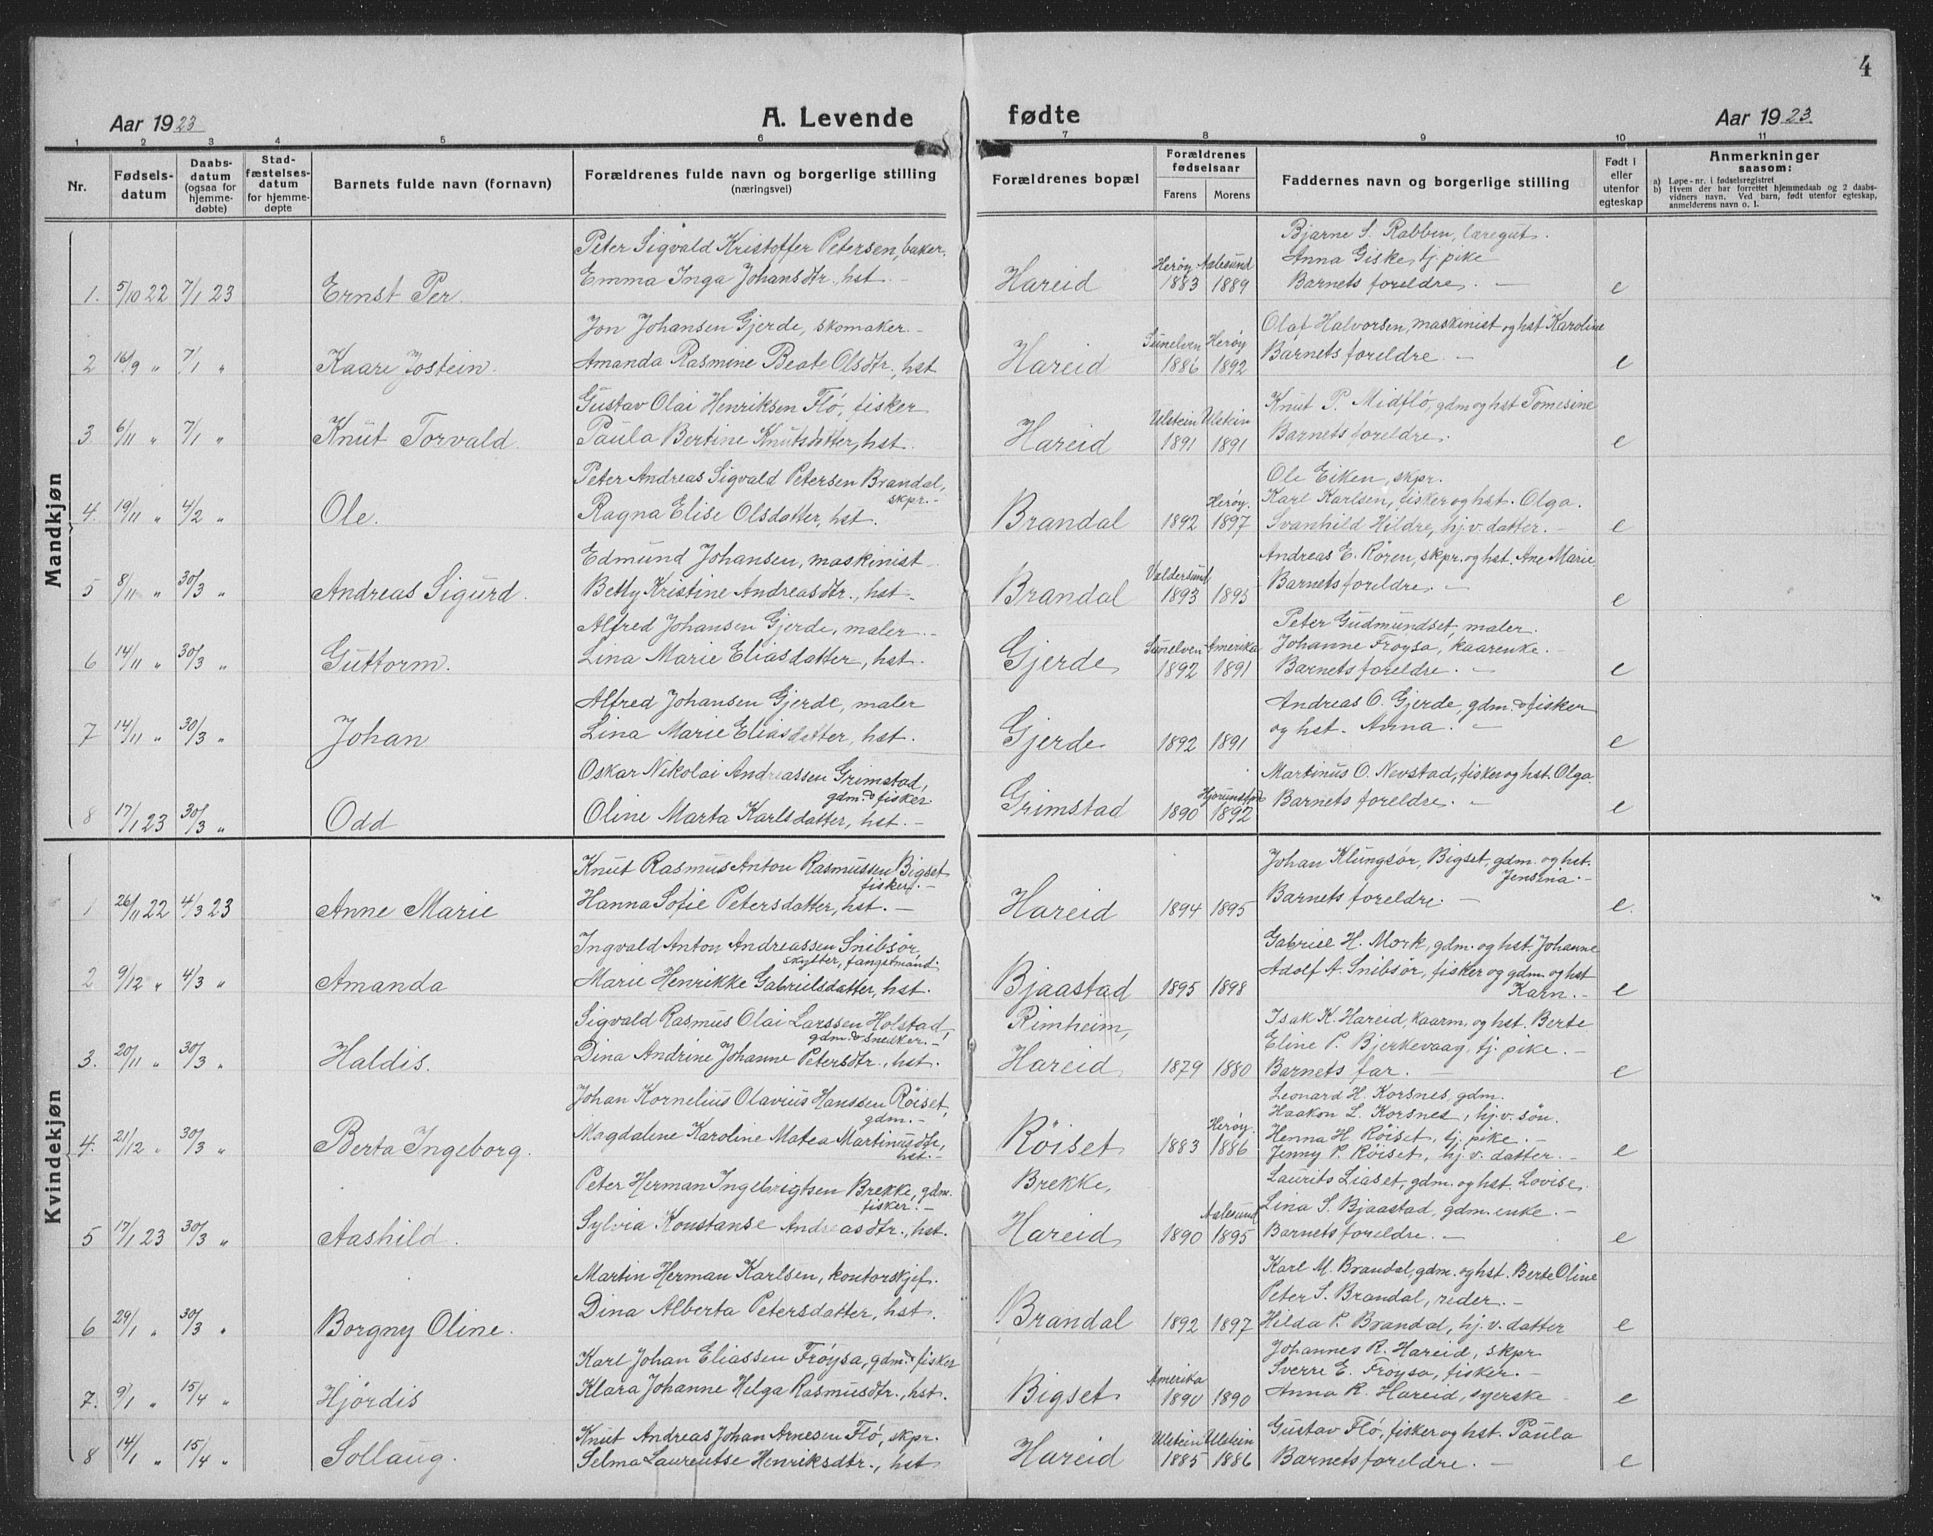 4
Aar 1923
A. Levende
fødte
Aar 1923
1 2 3 4 5 6 7 8 9 10 11
Nr.
Fødsels-
datum
Daabs-
datum
(ogsaa for
hjemme-
døbte)
Stad-
fæstelses-
datum
for hjemme-
døpte
Barnets fulde navn (fornavn)
Forældrenes fulde navn og borgerlige stilling
(næringsvei)
Forældrenes bopæl
Forældrenes
fødselsaar
Farens Morens
Faddernes navn og borgerlige stilling
Født i
eller
utenfor
egteskap
Anmerkninger
saasom:
a) Løpe-nr. i fødselsregistret
b) Hvem der har forrettet hjemmedaab og 2 daabs-
vidners navn. Ved barn, født utenfor egteskap,
anmelderens navn o. l.
Mandkjøn
1. 5/10 22 7/1 23 Ernst Per.
Peter Sigvald Kristoffer Petersen, baker.
Emma Inga Johansdtr, hst. -
Hareid Herøy 1883 Aalesund 1889
Bjarne S. Rabben, læregut.
Anna Giske, tj. pike
Barnets foreldre. - e
2 16/9 " 7/1 " Kaare Jostein.
Jon Johansen Gjerde, skomaker. -
Amanda Rasmine Beate Olsdtr., hst
Hareid Sunelven 1886 Herøy 1892
Olaf Halvorsen, maskinist og hst Karoline
Barnets foreldre. - e
3 6/11 " 7/1 " Knut Torvald.
Gustav Olai Henriksen Flø, fisker
Paula Bertine Knutsdatter, hst.
Hareid Ulstein 1891 Ulstein 1891
Knut P. Midflø, gdm og hst Tomesine
Barnets foreldre. e
4. 19/11 " 4/2 " Ole.
Peter Andreas Sigvald Petersen Brandal,
skpr. -
Ragna Elise Olsdatter, hst.
Brandal 1892 Herøy. 1897
Ole Eiken, skpr.
Karl Karlsen, fisker og hst. Olga.
Svanhild Hildre, hj. v. datter. - e
5 8/11 " 30/3 " Andreas Sigurd.
Edmund Johansen, maskinist -
Betty Kristine Andreasdtr., hst.
Brandal Valdersund 1893 1893
Andreas E. Røren, skpr. og hst. Ane Marie
Barnets foreldre. - e
6 14/11 " 30/3 " Guttorm.
Alfred Johansen Gjerde, maler. -
Lina Marie Eliasdatter, hst.
Gjerde Sunelven 1892 Amerika 1891
Peter Gudmundset, maler.
Johanne Frøysa, kaarenke. -
Barnets foreldre. - e
7 14/11 " 30/3 " Johan
Alfred Johansen Gjerde, maler
Lina Marie Eliasdatter, hst.
Gjerde 1892 1891
Andreas O. Gjerde, gdm. & fisker
og hst. Anna. - e
8 17/1 23 30/3 " Odd
Oskar Nikolai Andreassen Grimstad,
gdm. & fisker
Oline Marta Karlsdatter, hst. -
Grimstad 1890 1892
Martinus O. Nevstad, fisker og hst. Olga
Barnets foreldre. - e
Kvindekjøn
1 26/11 22 4/3 23 Anne Marie
Knut Rasmus Anton Rasmussen Bigset
fisker. -
Hanna Sofie Petersdatter, hst. -
Hareid 1894 1895
Johan Klungsør, Bigset, gdm. og hst.
Jensina. -
Barnets foreldre. - e.
2 9/12 " 4/3 " Amanda
Ingvald Anton Andreassen Snibsør,
skytter, fangstmand.
Marie Henrikke Gabrielsdatter, hst.
Bjaastad 1895 1898
Gabriel H. Mork, gdm. og hst. Johanne
Adolf A. Snibsør, fisker og gdm. og hst
Karn. - e
3. 20/11 " 30/3 " Haldis.
Sigvald Rasmus Olai Larssen Holstad,
gdm. & snedker. -
Dina Andrine Johanne Petersdtr., hst.
Rimheim,
Hareid 1879 1880
Isak K. Hareid, kaarm. og hst. Berte
Eline P. Bjerkevaag, tj. pike. -
Barnets far. - e
4. 21/12 " 30/3 " Berta Ingeborg.
Johan Kornelius Olavius Hanssen Røiset,
gdm. -
Magdalene Karoline Matea Martinusdtr,
hst. -
Røiset 1883 Herøy. 1886
Leonard H. Korsnes, gdm.
Haakon L. Korsnes, hj. v. søn.
Henna H. Røiset, tj. pike. -
Jenny P. Røiset, hj. v. datter. - e
5 17/1 23 30/3 " Aashild.
Peter Herman Ingebrigtsen Brekke, gdm.
fisker. -
Sylvia Konstanse Andreasdtr., hst.
Brekke,
Hareid 1890 Aalesund 1895
Laurits Liaset, gdm. og hst. Lovise.
Lina S. Bjaastad, gdm. enke. -
Barnets foreldre. - e
6 29/1 " 30/3 " Borgny Oline.
Martin Herman Karlsen, kontorskjef.
Dina Alberta Petersdatter, hst.
Brandal 1892 1897
Karl M. Brandal, gdm. og hst. Berte Oline
Peter S. Brandal, reder. -
Hilda P. Brandal, hj. v. datter e
7. 9/1 " 15/4 " Hjørdis
Karl Johan Eliassen Frøysa, gdm. & fisker
Klara Johanne Helga Rasmusdtr., hst.
Bigset Amerika 1890 1890
Johannes R. Hareid, skpr
Sverre E. Frøysa, fisker. -
Anna R. Hareid, syerske e
8 14/1 " 15/4 " Sollaug.
Knut Andreas Johan Arnesen Flø, skpr.
Selma Laurentse Henriksdtr., hst
Hareid Ulstein 1885 Ulstein 1886
Gustav Flø, fisker og hst. Paula
Barnets foreldre. - e